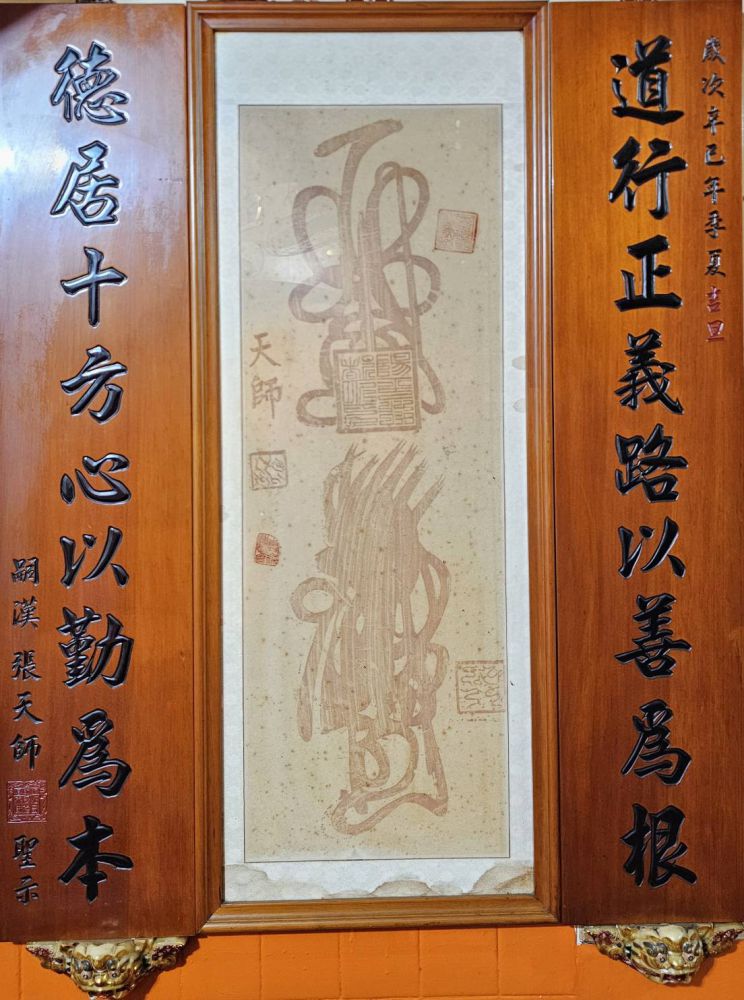 歲次辛巳年季夏吉旦
道行正義路以善為根
天師
德居十方心以勤為本
嗣漢張天師
聖示